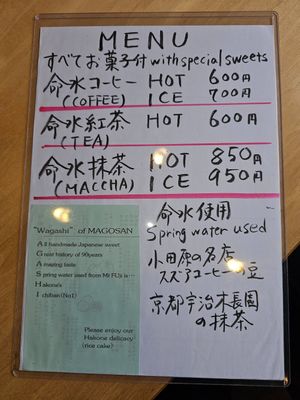 MENU
すべてお菓子付 with special sweets
命水コーヒー HOT 600円
(COFFEE) ICE 700円
命水紅茶 HOT 600円
(TEA)
命水抹茶 HOT 850円
(MACCHA) ICE 950円
命水使用
Spring water used
小田原の名店
スズアコーヒーの豆
京都宇治木長園
の抹茶
"Wagashi" of MAGOSAN
All handmade Japanese sweet
Great history of 90years
Amazing taste
Spring water used from Mt FUJI
Hakone's
Ichiban(No1)
Please enjoy our
Hakone delicacy
(rice cake)